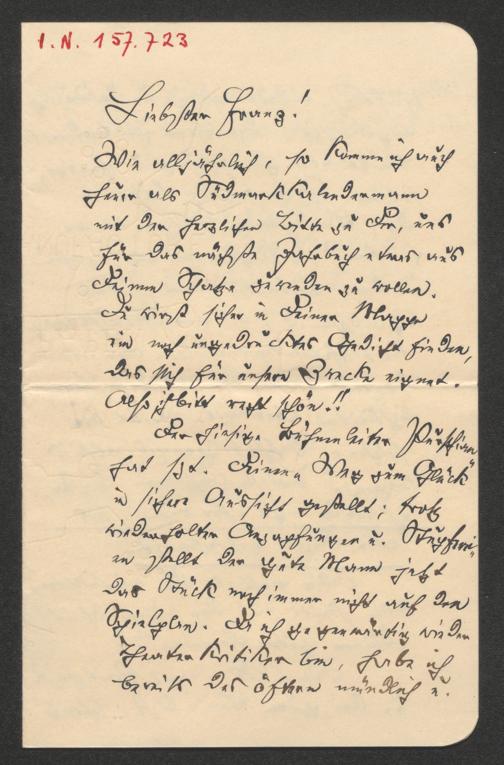 I.N. 157.723
Liebster Franz!
Wie alljährlich, so komme ich auch
heuer als Südmarkkalendermann
mit der herzlichen Bitte zu Dir, uns
für das nächste Jahrbuch etwas aus
Deinem Schatze zuwenden zu wollen.
Du wirst sicher in Deiner Mappe
ein noch ungedrucktes Gedicht finden,
das sich für unsere Zwecke eignet.
Also ich bitt recht schön!!
Der hiesige Bühnenleiter
hat szt. Deinen „Weg zum Glück"
in sichere Aussicht gestellt; trotz
wiederholter Anzapfungen u.
en stellt der gute Mann jetzt
das Stück noch immer nicht auf den
Spielplan. Da ich gegenwärtig wieder
Theaterkritiker bin, habe ich
bereits des öftern mündlich u.